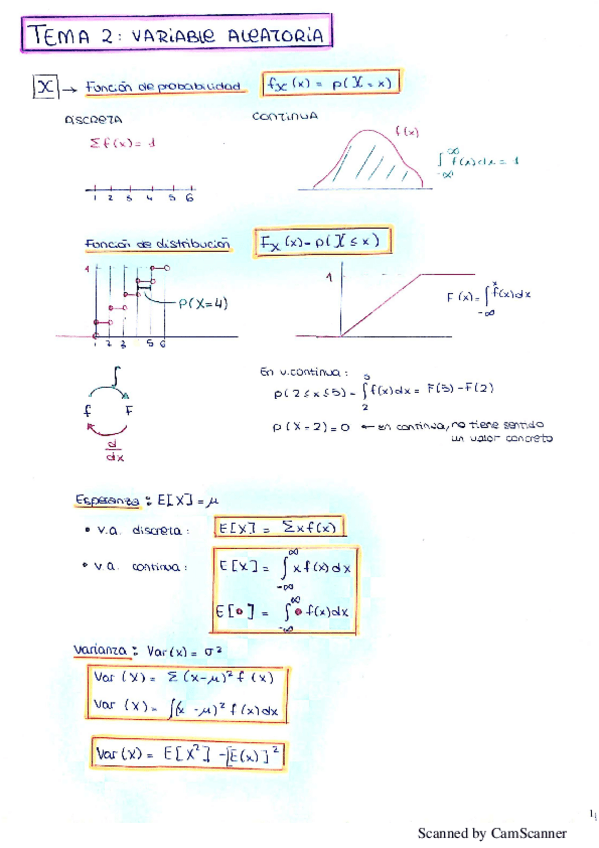 TEMA 2: VARIABLE ALEATORIA
X → Función de probabilidad fx(x) = p(X = x)
DISCRETA CONTINUA
Σf(x) = 1
f(x)
∫_{-∞}^{∞} f(x)dx = 1
1 2 3 4 5 6
Función de distribución Fx(x) = p(X ≤ x)
1
P(X=4)
1 2 3 5 6
1
F(x) = ∫_{-∞}^{x} f(x)dx
∫
f F
d/dx
En v.continua:
p(2≤x≤5) = ∫_{2}^{5} f(x)dx = F(5) - F(2)
p(X=2) = 0 ← en continua, no tiene sentido
un valor concreto
Esperanza: E[X] = μ
• v.a. discreta: E[X] = Σxf(x)
• v.a. continua: E[X] = ∫_{-∞}^{∞} x f(x)dx
E[•] = ∫_{-∞}^{∞} • f(x)dx
Varianza: Var(x) = σ²
Var(X) = Σ(x-μ)² f(x)
Var(X) = ∫(x-μ)² f(x)dx
Var(X) = E[X²] - [E(x)]²
1
Scanned by CamScanner